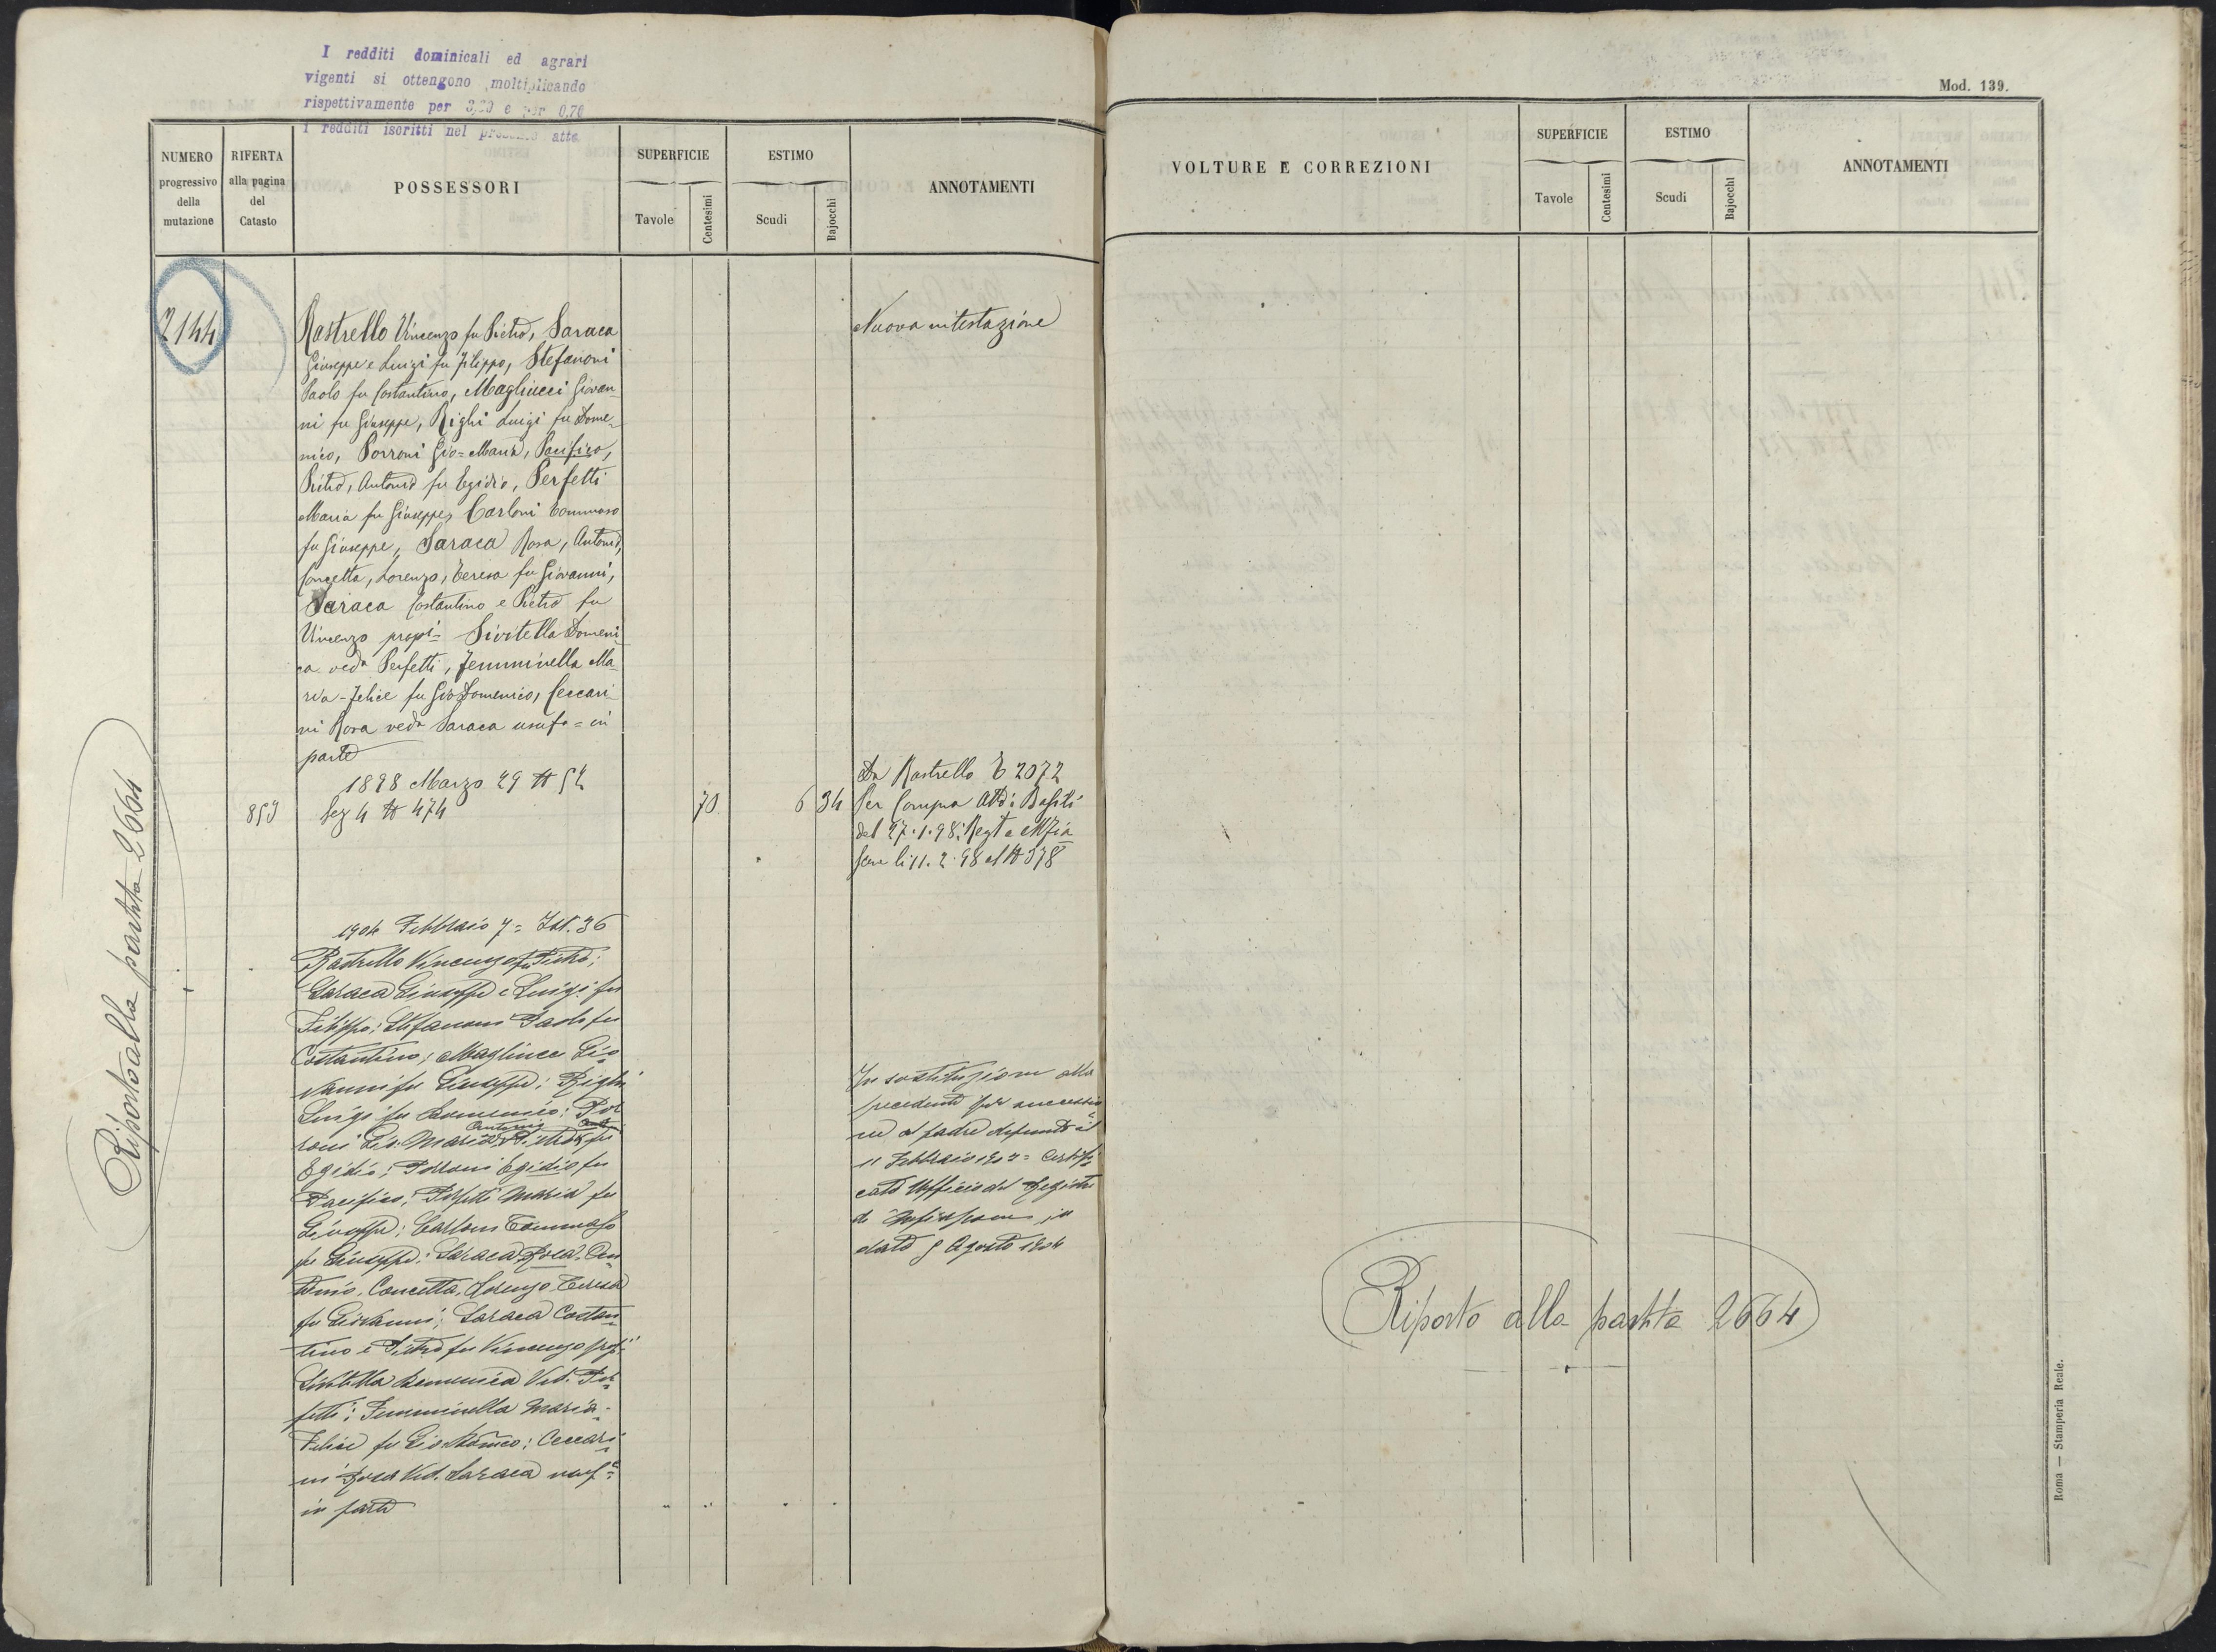 I redditi dominicali ed agrari
vigenti si ottengono moltiplicando
rispettivamente per 3,20 e per 0,70
I redditi iscritti nel presente atto
Mod. 139.
NUMERO progressivo della mutazione
RIFERTA alla pagina del Catasto
POSSESSORI
SUPERFICIE
Tavole
Centesimi
ESTIMO
Scudi
Bajocchi
ANNOTAMENTI
VOLTURE E CORREZIONI
SUPERFICIE
Tavole
Centesimi
ESTIMO
Scudi
Bajocchi
ANNOTAMENTI
2144
Rastrello Vincenzo fu Pietro, Saraca
Giuseppe e Luigi fu Filippo, Stefanoni
Paolo fu Costantino, Magliucci Giovan
ni fu Giuseppe, Righi Luigi fu Dome-
nico, Porroni Gio=Maria, Pacifico,
Pietro, Antonio fu Egidio, Perfetti
Maria fu Giuseppe, Carloni Tommaso
fu Giuseppe, Saraca Rosa, Antonio,
Concetta, Lorenzo, Teresa fu Giovanni,
Saraca Costantino e Pietro fu
Vincenzo propi= Sivitella Domeni
ca veda Perfetti, Femminella Ma
ria-Felice fu Gio Domenico, Ceccari
ni Rosa veda Saraca usufa= in
parte
Nuova intestazione
1898 Marzo 29 N 52
853 Sez 4 N 474 70 6 34
Da Rastrello V 2072
Per Compra Atti Basili
del 27.1.98; Regta a Mfia
scone li 11.2.98 al N 378
1904 Febbraio 7= Ist. 36
Rastrello Vincenzo fu Pietro;
Saraca Giuseppe e Luigi fu
Filippo; Stefanoni Paolo fu
Costantino; Magliucci Gio
vanni fu Giuseppe; Righi
Luigi fu Domenico; Por
roni Gio. Maria Antonio Pietro fu
Egidio; Porroni Egidio fu
Pacifico; Perfetti Maria fu
Giuseppe; Carloni Tommaso
fu Giuseppe; Saraca Rosa, An
tonio, Concetta, Lorenzo, Teresa
fu Giovanni; Saraca Costan
tino e Pietro fu Vincenzo propi
Sivitella Domenica Ved. Per
fetti; Femminella Maria-
Felice fu Gio. Domco; Ceccari
ni Rosa Ved. Saraca usufa=
in parte
In sostituzione alla
precedente per successio
ne al padre defunto il
11 Febbraio = Certifi
cato Ufficio del Registro
di Montefiascone in
data 5 Agosto 1904
Riporto alla partita 2664
Riporto alla partita 2664
Roma — Stamperia Reale.